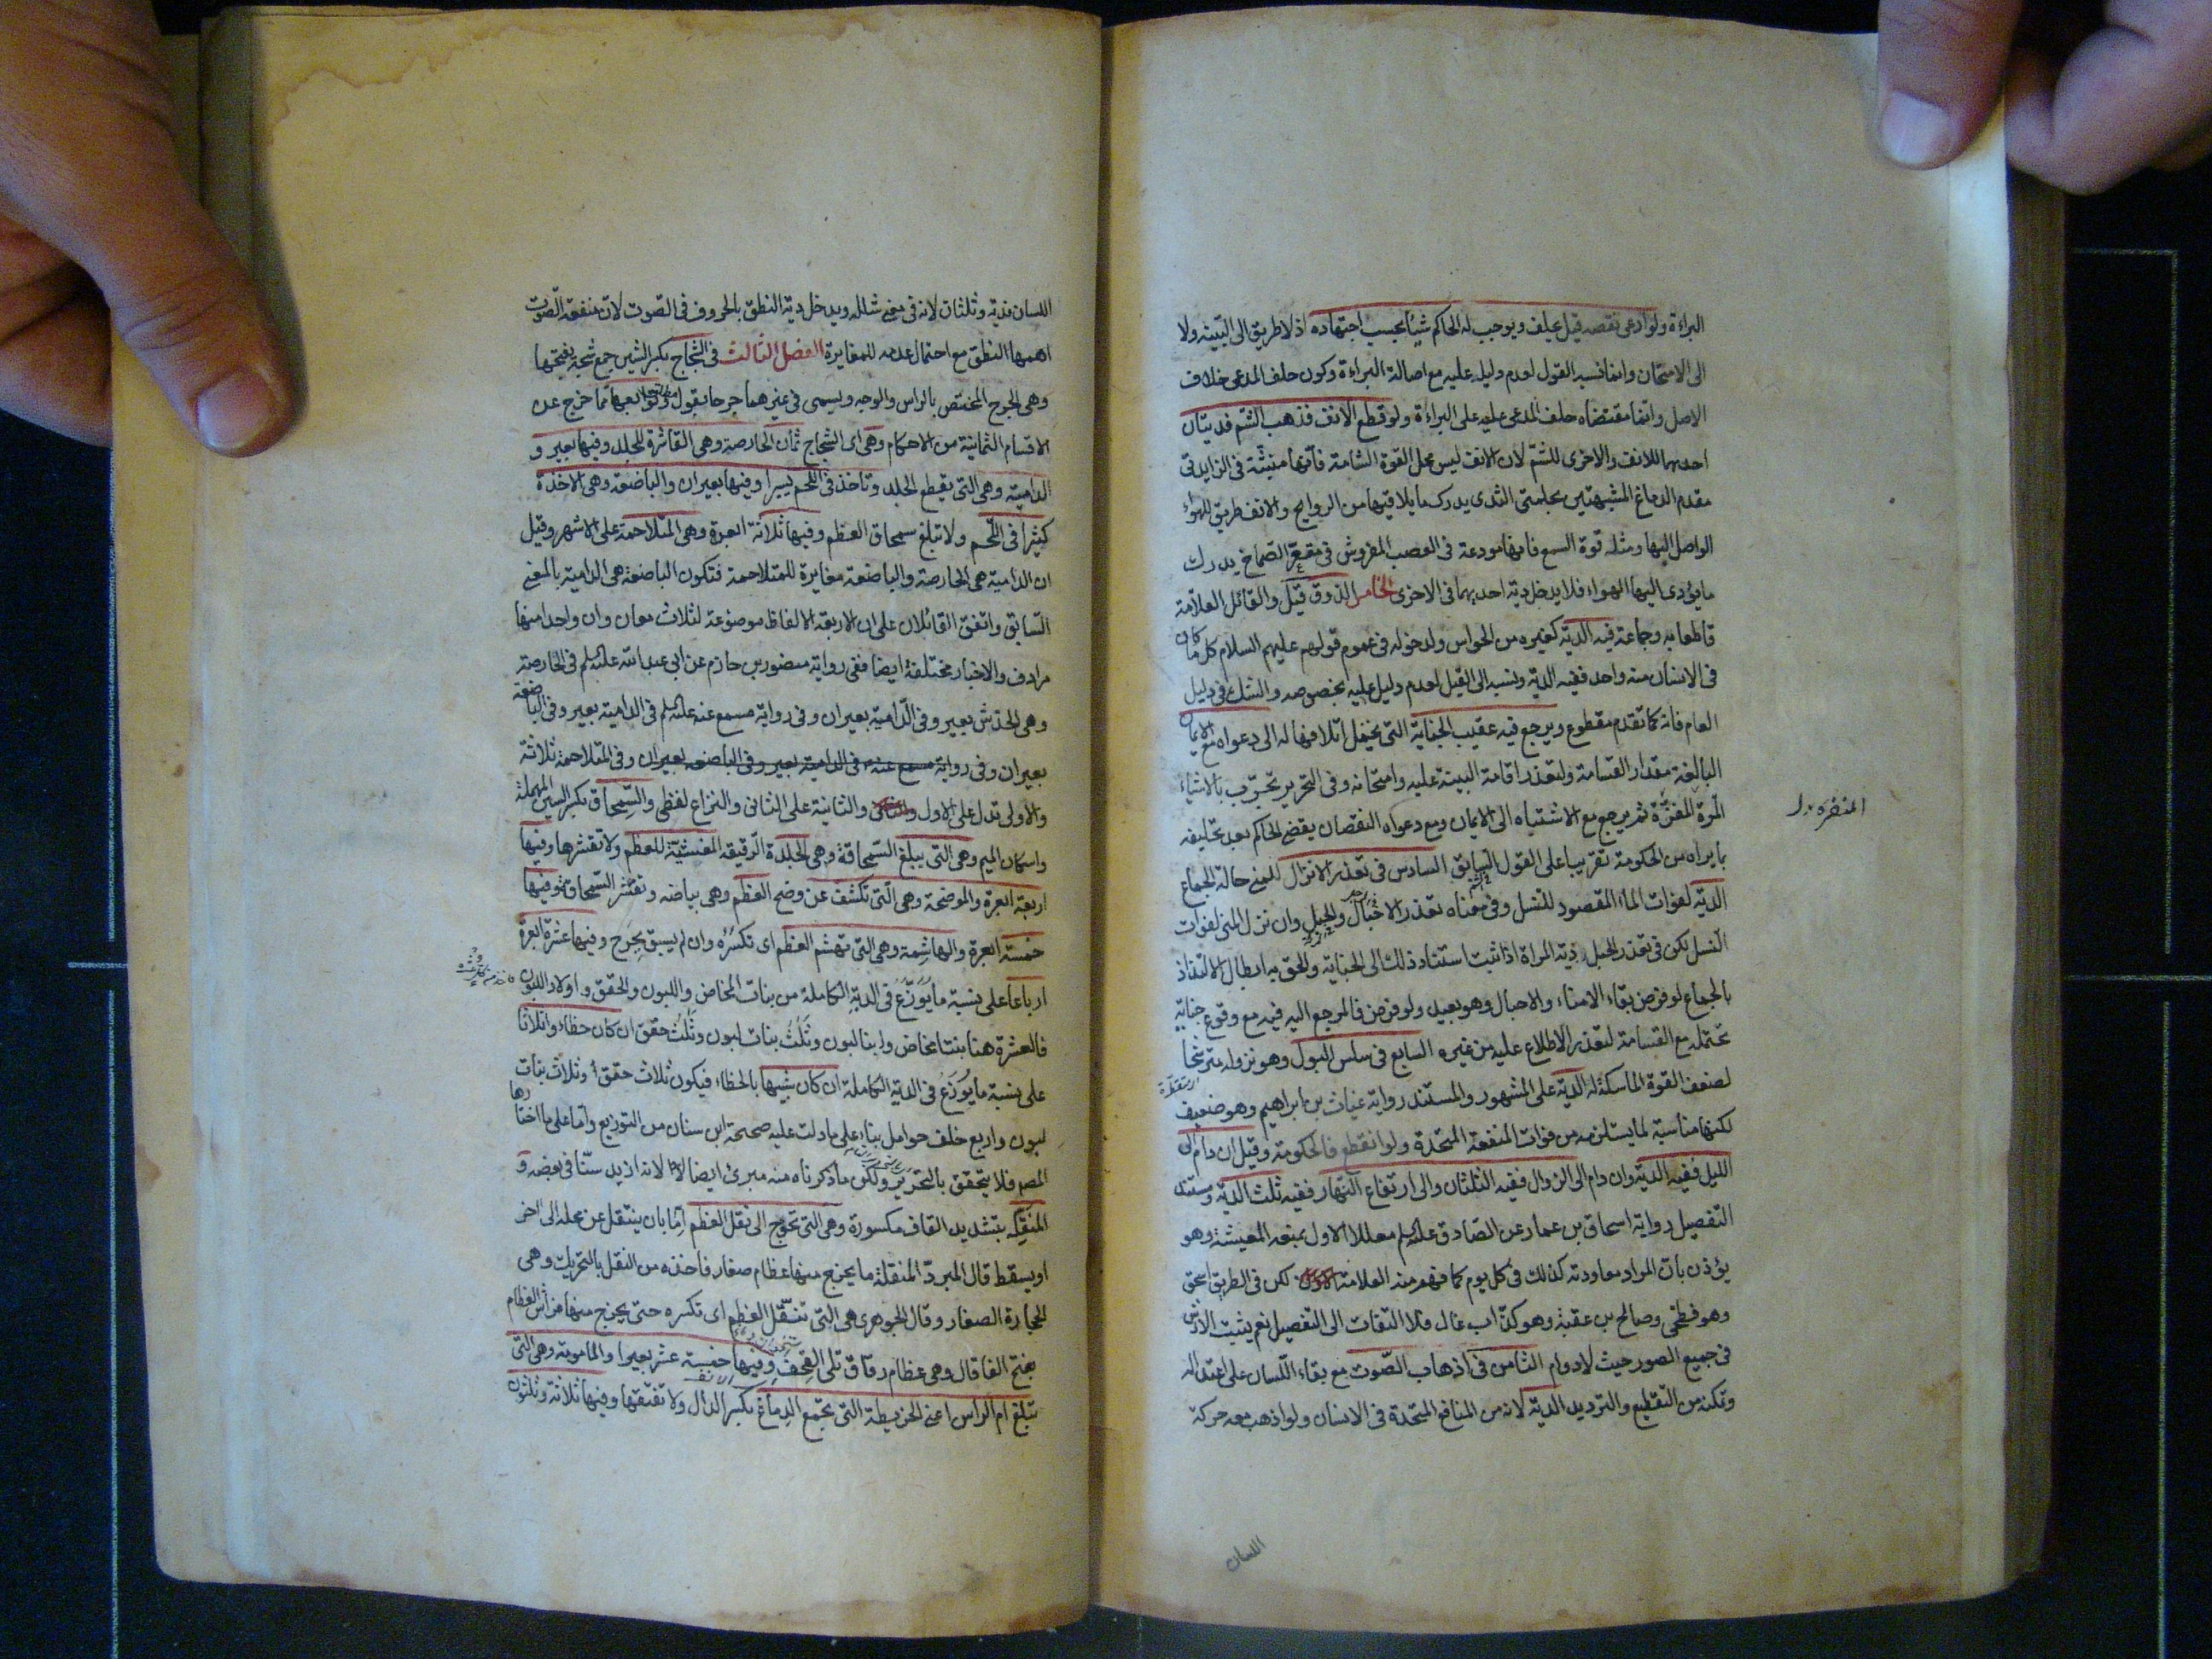 البراءة ولو ادعى نقصه قيل يحلف ويوجب له الحاكم شيئا بحسب اجتهاده اذ لا طريق الى البينة ولا
الى الامتحان وانما نسبه القول لعدم دليل عليه مع اصالة البراءة وكون حلف المدعى خلاف
الاصل وانما مقتضاه حلف المدعى عليه على البراءة ولو قطع الانف فذهب الشم فديتان
احديهما للانف والاخرى للشم لان الانف ليس محل القوة الشامة فانها منبثة في الزايدتى
مقدم الدماغ المشبهتين بحلمتى الثدى يدرك ما يلاقيها من الروايح والانف طريق للهواء
الواصل اليها ومثله قوة السمع فانها مودعة فى العصب المفروش فى مقعر الصماخ يدرك
ما يؤدى اليها الهواء فلا يدخل دية احديهما فى الاخرى الخامس الذوق قيل والقائل العلامة
قاطعا به وجماعة فيه الدية كغيره من الحواس ولدخوله فى عموم قولهم عليهم السلام كل ما كان
فى الانسان منه واحد ففيه الدية ونسبه الى القيل لعدم دليل عليه بخصوصه والشك فى دليل
العام فانه كما تقدم مقطوع ويرجع فيه عقيب الجناية التى يحتمل اتلافها له الى دعواه مع الايمان
البالغة مقدار القسامة ولتعذر اقامة البينة عليه وامتحانه وفى التحرير يجرب بالاشياء
المرة المقرة ثم يرجع مع الاشتباه الى الايمان ومع دعواه النقصان يقضى الحاكم بعد تحليفه
المنفره بدل
بما يراه من الحكومة تقريبا على القول السابق السادس فى تعذر الانزال للمنى حالة الجماع
الدية لفوات الماء المقصود للنسل وفى معناه تعذر الاحبال والحبل وان نزل المنى لفوات
النسل لكن فى تعذر الحبل دية المراة اذا ثبت استناد ذلك الى الجناية والحق به ابطال الالتذاذ
بالجماع لو فرض بقاء الامناء والاحبال وهو بعيد ولو فرض فالمرجع اليه فيه مع وقوع جناية
تحتمله مع القسامة لتعذر الاطلاع عليه من غيره السابع فى سلس البول وهو نزوله مترشحا
لضعف القوة الماسكة له الدية على المشهور والمستند رواية غياث بن ابراهيم وهو ضعيف
لكنها مناسبة لما يستلزمه من فوات المنفعة المتحدة ولو انقطع فالحكومة وقيل ان دام الى
الليل ففيه الدية وان دام الى الزوال ففيه الثلثان والى ارتفاع النهار ففيه ثلث الدية ومستند
التفصيل رواية اسحاق بن عمار عن الصادق عليه السلم معللا الاول بمنعه المعيشة وهو
يؤذن بان المراد معاودته كذلك فى كل يوم كما فهم منه العلامة لكن فى الطريق اسحق
وهو فطحى وصالح بن عقبة وهو كذاب غال فلا التفات الى التفصيل نعم يثبت الارش
فى جميع الصور حيث لا دوام الثامن فى اذهاب الصوت مع بقاء اللسان على اعتداله
وتمكنه من التقطيع والترديد الدية لانه من المنافع المتحدة فى الانسان ولو اذهب معه حركة
اللسان
اللسان فدية وثلثان لانه فى معنى شلله ويدخل دية النطق بالحروف فى الصوت لان منفعة الصوت
اهمها النطق مع احتمال عدمه للمغايرة الفصل الثالث فى الشجاج بكسر الشين جمع شجة بفتحها
وهى الجرح المختص بالراس والوجه ويسمى فى غيرهما جرحا بقول مطلق وتوابعها مما خرج عن
الاقسام الثمانية من الاحكام وهى اى الشجاج ثمان الحارصة وهى القاشرة للجلد وفيها بعير و
الدامية وهى التى يقطع الجلد وتاخذ فى اللحم يسيرا وفيها بعيران والباضعة وهى الاخذة
كثيرا فى اللحم ولا تبلغ سمحاق العظم وفيها ثلاثة ابعرة وهى المتلاحمة على الاشهر وقيل
ان الدامية هى الحارصة والباضعة مغايرة للمتلاحمة فتكون الباضعة هى الدامية بالمعنى
السابق واتفق القائلان على ان الاربعة الالفاظ موضوعة لثلاث معان وان واحدا منها
مرادف والاخبار مختلفة ايضا ففى رواية منصور بن حازم عن ابى عبد الله عليه السلم فى الحارصة
وهى الخدش بعير وفى الدامية بعيران وفى رواية مسمع عنه عليه السلم فى الدامية بعير وفى الباضعة
بعيران وفى رواية مسمع عنه فى الدامية بعير وفى الباضعة بعيران وفى المتلاحمة ثلاثة
والاولى تدل على الاول والثانية على الثانى والنزاع لفظى والسمحاق بكسر السين المهملة
واسكان الميم وهى التى يبلغ السمحاقة وهى الجلدة الرقيقة المغشية للعظم ولا تقشرها وفيها
اربعة ابعرة والموضحة وهى التى تكشف عن وضح العظم وهى بياضه وتقشر السمحاقة وفيها
خمسة ابعرة والهاشمة وهى التى تهشم العظم اى تكسره وان لم يسبق بجرح وفيها عشرة ابعرة
ارباعا على نسبة ما يوزع فى الدية الكاملة من بنات المخاض واللبون والحقق واولاد اللبون
فالعشرة هنا بنتا مخاض وابنا لبون وثلث بنات لبون وثلث حقق ان كان خطاء واثلاثا
على نسبة ما يوزع فى الدية الكاملة ان كان شبيها بالخطاء فيكون ثلاث حقق وثلاث بنات
لبون واربع خلف حوامل بناء على ما دلت عليه صحيحة ابن سنان من التوزيع واما على ما اختارها
المصم فلا يتحقق بالتحرير ولكن ما ذكرناه منه مبرئ ايضا لانه ازيد سنا فى بعضه و
المنقلة بتشديد القاف مكسورة وهى التى تحوج الى نقل العظم اما بان ينتقل عن محله الى اخر
او يسقط قال المبرد المنقلة ما يخرج منها عظام صغار فاخذه من النقل بالتحريك وهى
الحجارة الصغار وقال الجوهرى هى التى تنقل العظم اى تكسره حتى يخرج منها فراش العظام
بفتح الفا قال وهى عظام رقاق تلى القحف وفيها خمسة عشر بعيرا والمامومة وهى التى
تبلغ ام الراس اعنى الخريطة التى يجمع الدماغ بكسر الدال ولا تفتقها وفيها ثلاثة وثلثون